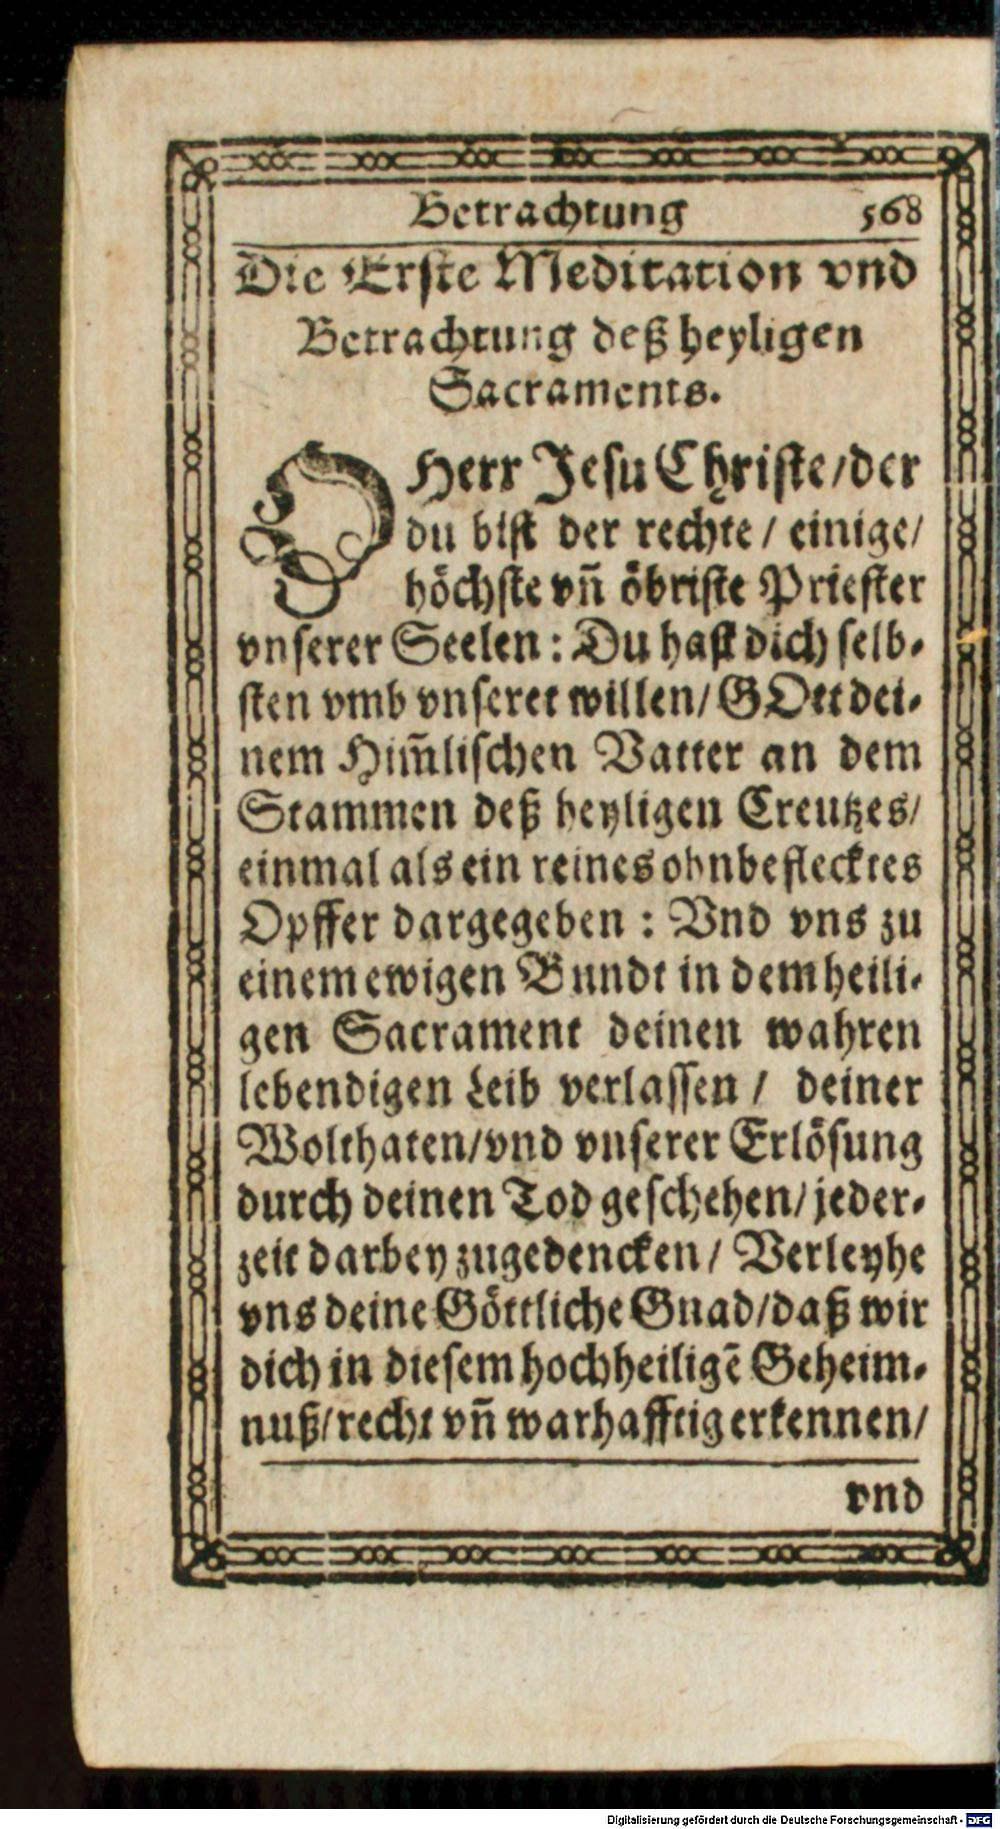 Betrachtung 568
Die Erste Meditation vnd
Betrachtung deß heyligen
Sacraments.
O Herr Jesu Christe/der
du bist der rechte / einige/
höchste vñ öbriste Priester
vnserer Seelen : Du hast dich selb-
sten vmb vnseret willen/ GOtt dei-
nem Him̃lischen Vatter an dem
Stammen deß heyligen Creutzes/
einmal als ein reines ohnbeflecktes
Opffer dargegeben : Vnd vns zu
einem ewigen Bundt in dem heili-
gen Sacrament deinen wahren
lebendigen Leib verlassen / deiner
Wolthaten/vnd vnserer Erlösung
durch deinen Tod geschehen/ jeder-
zeit darbey zugedencken / Verleyhe
vns deine Göttliche Gnad/daß wir
dich in diesem hochheiligẽ Geheim-
nuß/recht vñ warhafftig erkennen/
vnd
Digitalisierung gefördert durch die Deutsche Forschungsgemeinschaft - DFG